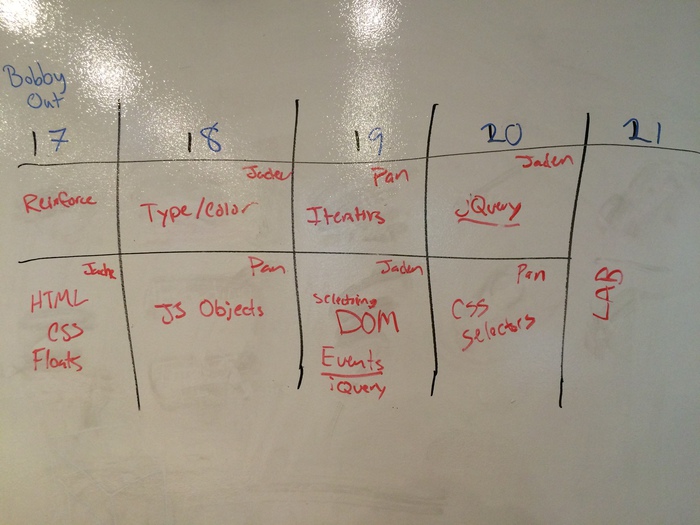 Bobby
Out
17
18
19
20
21
Reinforce
Jaden
Type/Color
Pan
Iterators
Jaden
jQuery
HTML
CSS
Floats
Pan
JS Objects
Jaden
Selecting
DOM
Events
jQuery
Pan
CSS
Selectors
LAB